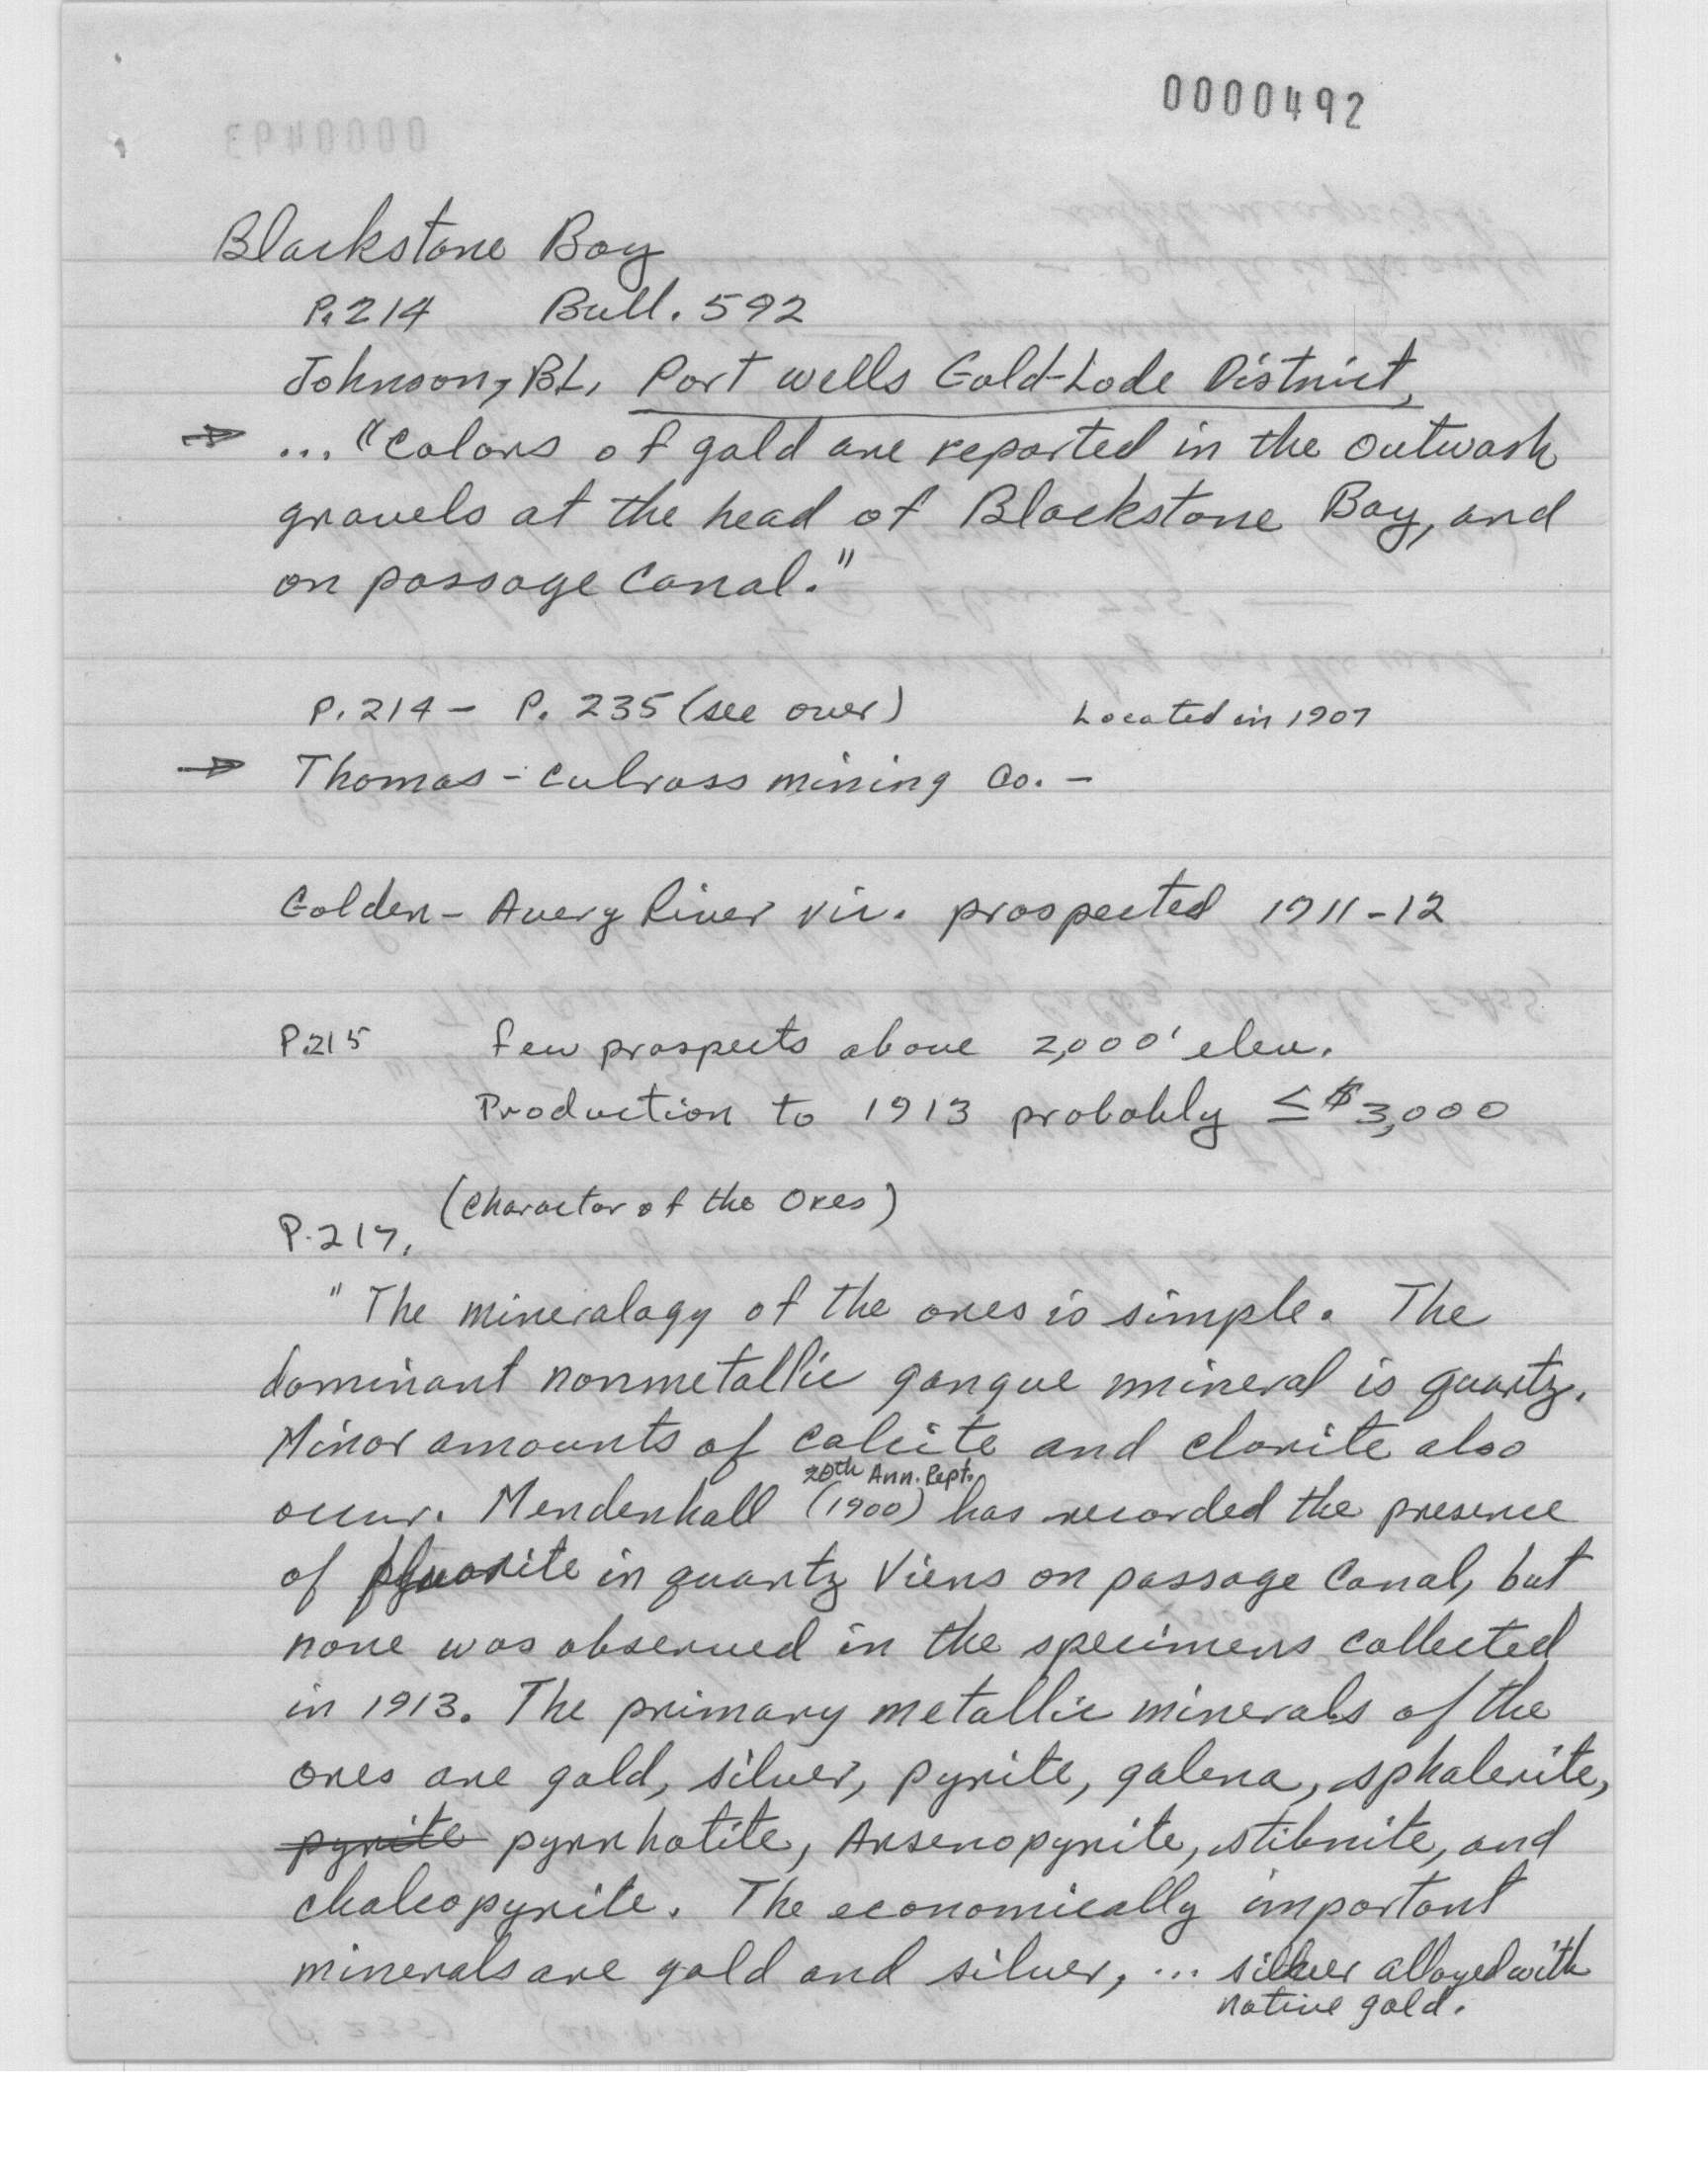 0000492
Blackstone Bay
P.214 Bull. 592
Johnson, BL, Port wells Gold-Lode District,
→ ... "Colors of gold are reported in the outwash
gravels at the head of Blackstone Bay, and
on passage Canal."
P.214 - P. 235 (see over) Located in 1907
→ Thomas - Culross mining Co. -
Golden - Avery River vic. prospected 1911-12
P.215 few prospects above 2,000' elev.
Production to 1913 probably ≤ $3,000
(Character of the Ores)
P.217,
"The mineralogy of the ores is simple. The
dominant nonmetallic gangue mineral is quartz.
Minor amounts of calcite and clorite also
20th Ann. Rept.
occur. Mendenhall (1900) has recorded the presence
of fluorite in quartz Viens on passage Canal, but
none was observed in the specimens collected
in 1913. The primary metallic minerals of the
ores are gold, silver, pyrite, galena, sphalerite,
pyrite pyrrhotite, Arsenopyrite, stibnite, and
chalcopyrite. The economically important
minerals are gold and silver, ... silver alloyed with
native gold.